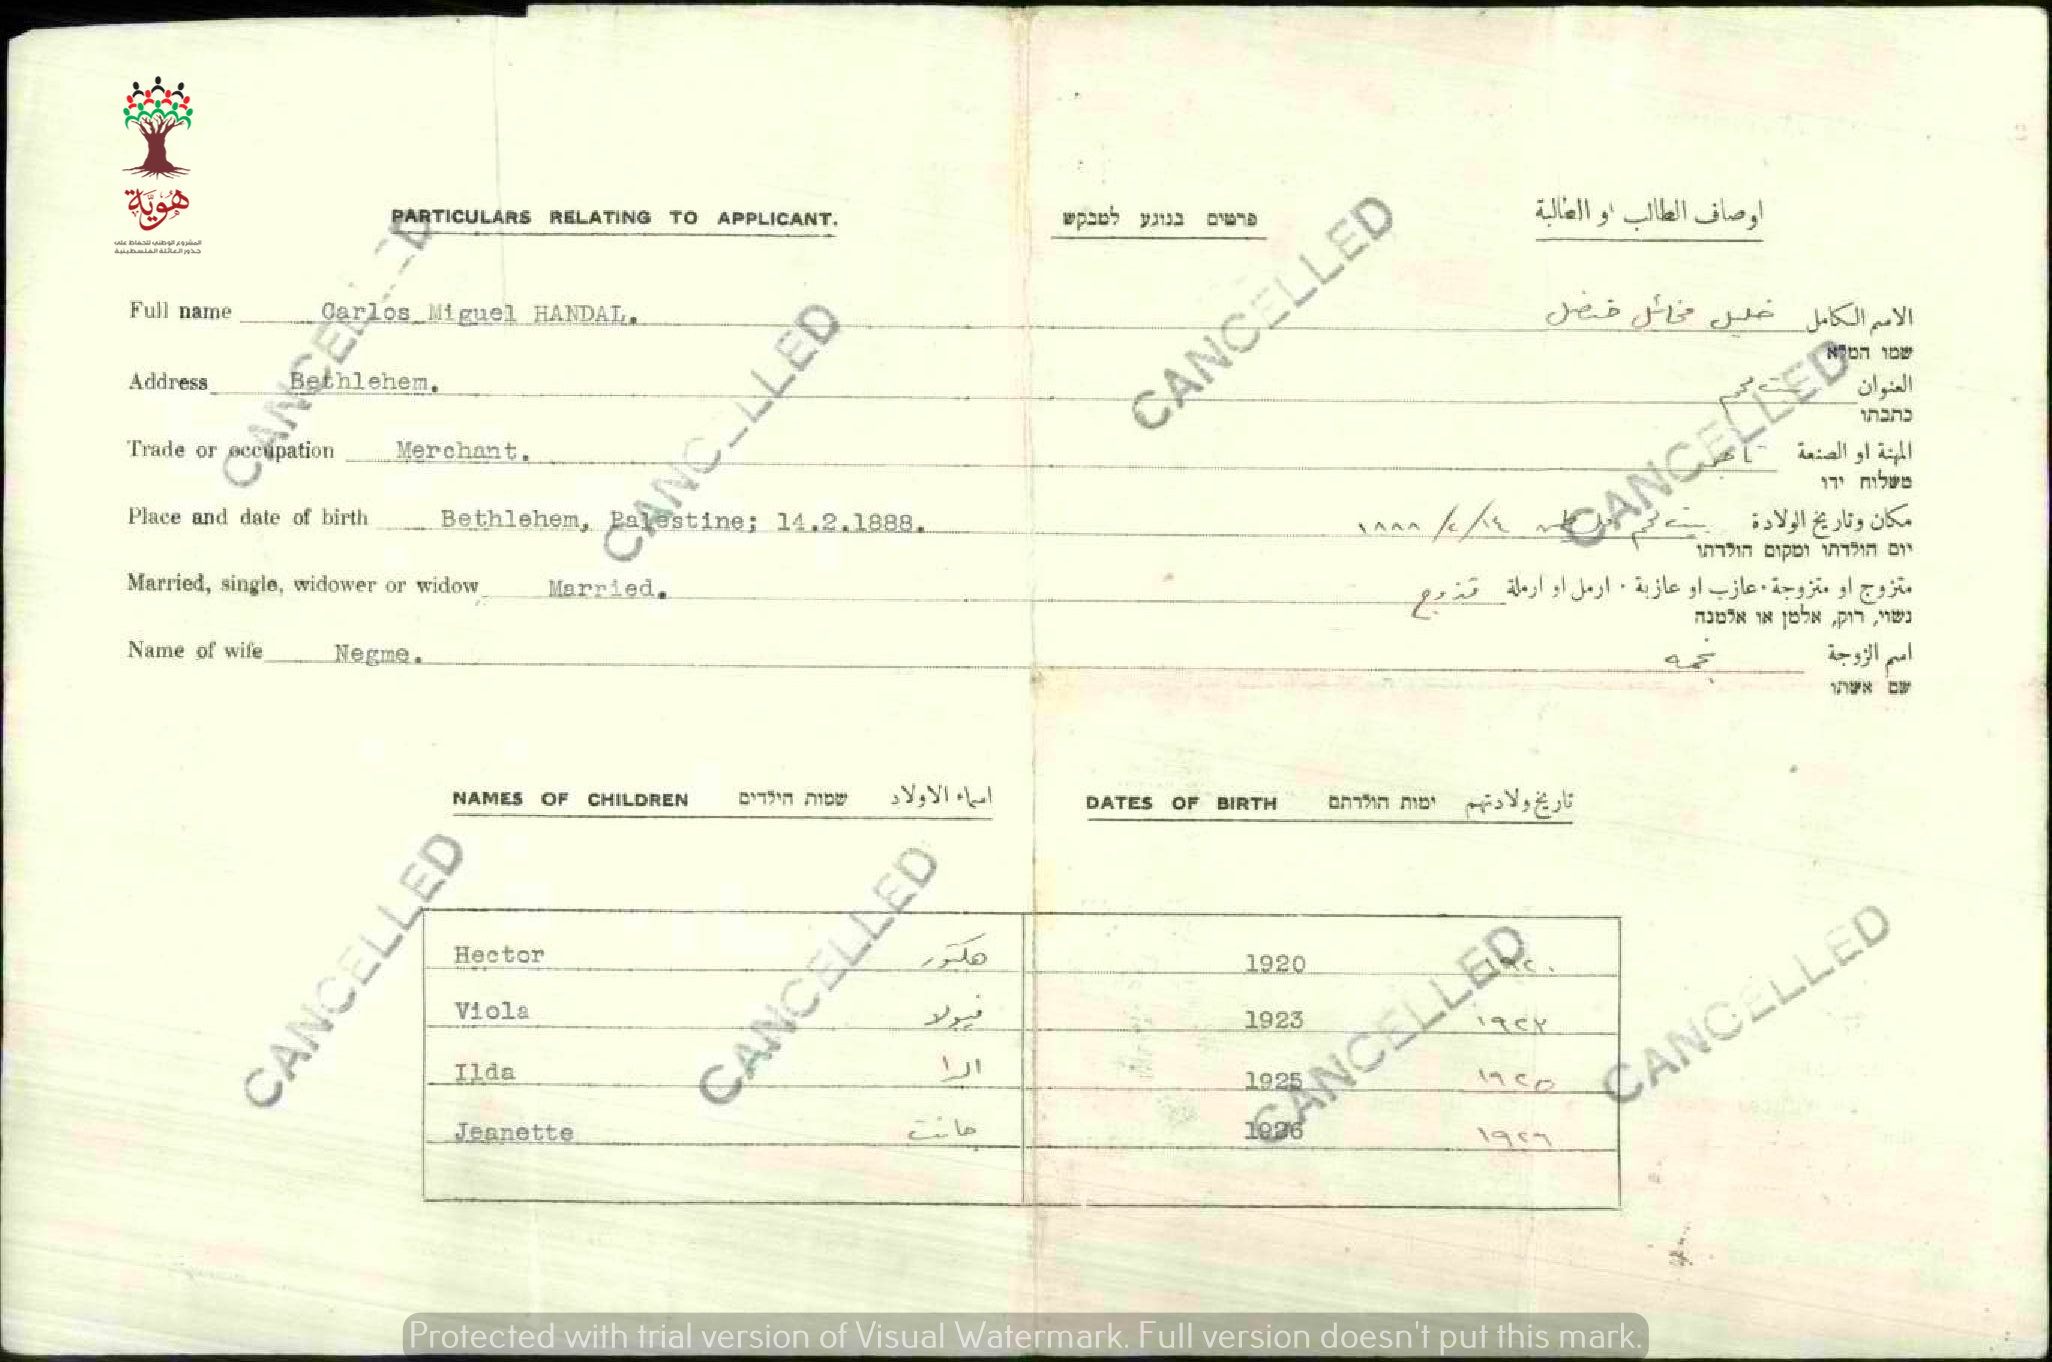 هوية
المشروع الوطني للحفاظ على
جذور العائلة الفلسطينية
PARTICULARS RELATING TO APPLICANT. פרטים בנוגע למבקש اوصاف الطالب او الطالبة
Full name Carlos Miguel HANDAL. خليل مخائل حنضل الاسم الكامل
שמו המלא
Address Bethlehem. بيت لحم العنوان
כתבתו
Trade or occupation Merchant. تاجر المهنة او الصنعة
משלוח ידו
Place and date of birth Bethlehem, Palestine; 14.2.1888. بيت لحم ١٤/٢/١٨٨٨ مكان وتاريخ الولادة
יום הולדתו ומקום הולדתו
Married, single, widower or widow Married. متزوج متزوج او متزوجة · عازب او عازبة · ارمل او ارملة
נשוי, רוק, אלמן או אלמנה
Name of wife Negme. نجمه اسم الزوجة
שם אשתו
NAMES OF CHILDREN שמות הילדים اسماء الاولاد DATES OF BIRTH ימות הולדתם تاريخ ولادتهم
Hector هكتور 1920 ١٩٢٠
Viola فيولا 1923 ١٩٢٣
Ilda الدا 1925 ١٩٢٥
Jeanette جانت 1926 ١٩٢٦
CANCELLED
CANCELLED
CANCELLED
CANCELLED
CANCELLED
CANCELLED
CANCELLED
CANCELLED
Protected with trial version of Visual Watermark. Full version doesn't put this mark.